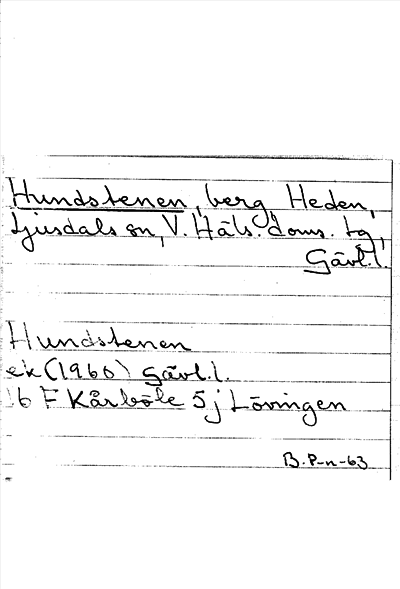 Hundstenen, berg Heden,
Ljusdals sn, V. Häls. doms. tg,
Gävl.l.
Hundstenen
ek (1960) Gävl.l.
16 F Kårböle 5 j Lövingen
B. P-n-63